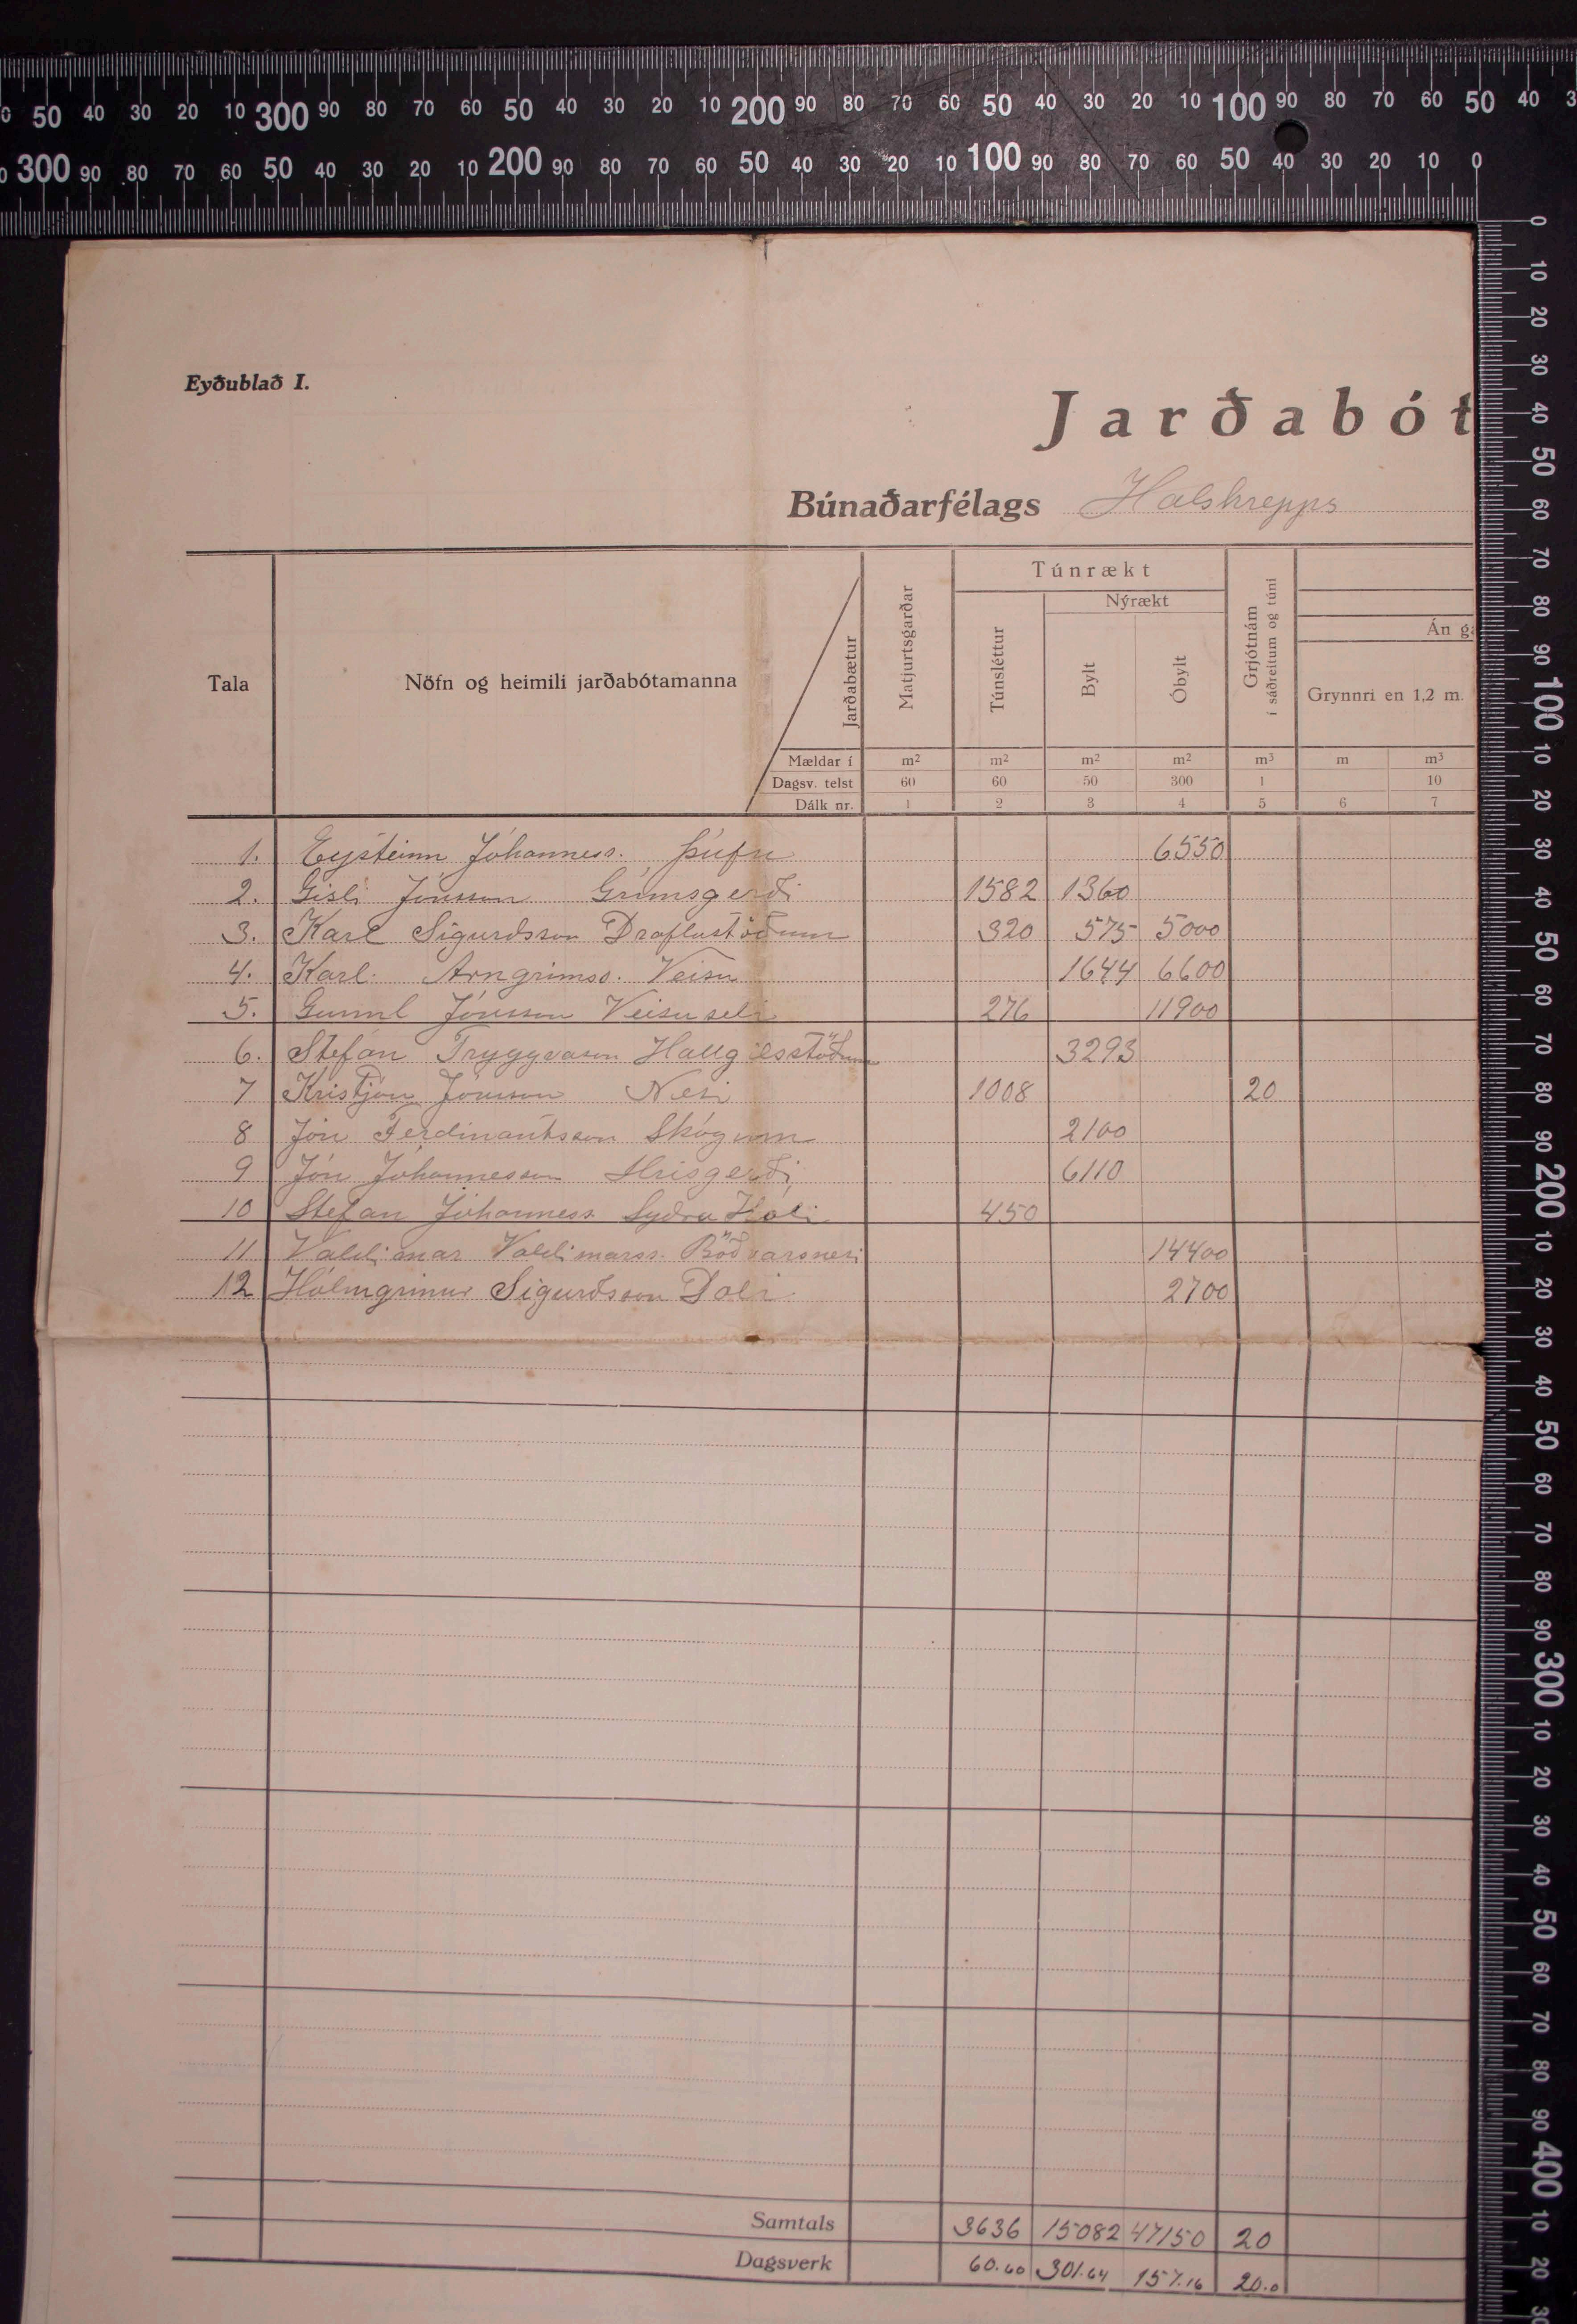 Eyðublað I.
Jarðabót
Búnaðarfélags Halshrepps
Tala
Nöfn og heimili jarðabótamanna
Jarðabætur
Matjurtsgarðar
Túnrækt
Túnsléttur
Nýrækt
Bylt
Óbylt
Grjótnám
í sáðreitum og túni
Án
Grynnri en 1,2 m.
Mældar í m² m² m² m² m³ m m³
Dagsv. telst 60 60 50 300 1 10
Dálk nr. 1 2 3 4 5 6 7
1. Eysteinn Jóhanness. Þúfu 6550
2. Gísli Jónsson Grímsgerði 1582 1360
3. Karl Sigurdsson Draflustöðum 320 575 5000
4. Karl Arngrimss. Veisu 1644 6600
5. Gunnl Jónsson Veisuseli 276 11900
6. Stefán Tryggvason Hallgilsstöðum 3293
7 Kristján Jónsson Nesi 1008 20
8 Jón Ferdinantsson Skógum 2100
9 Jón Jóhannesson Hrisgerði 6110
10 Stefán Jóhanness Sydra Hóli 450
11 Valdimar Valdimarss. Böðvarsnesi 14400
12 Hólmgrimur Sigurðsson Dali 2700
Samtals 3636 15082 47150 20
Dagsverk 60.60 301.64 157.16 20.0